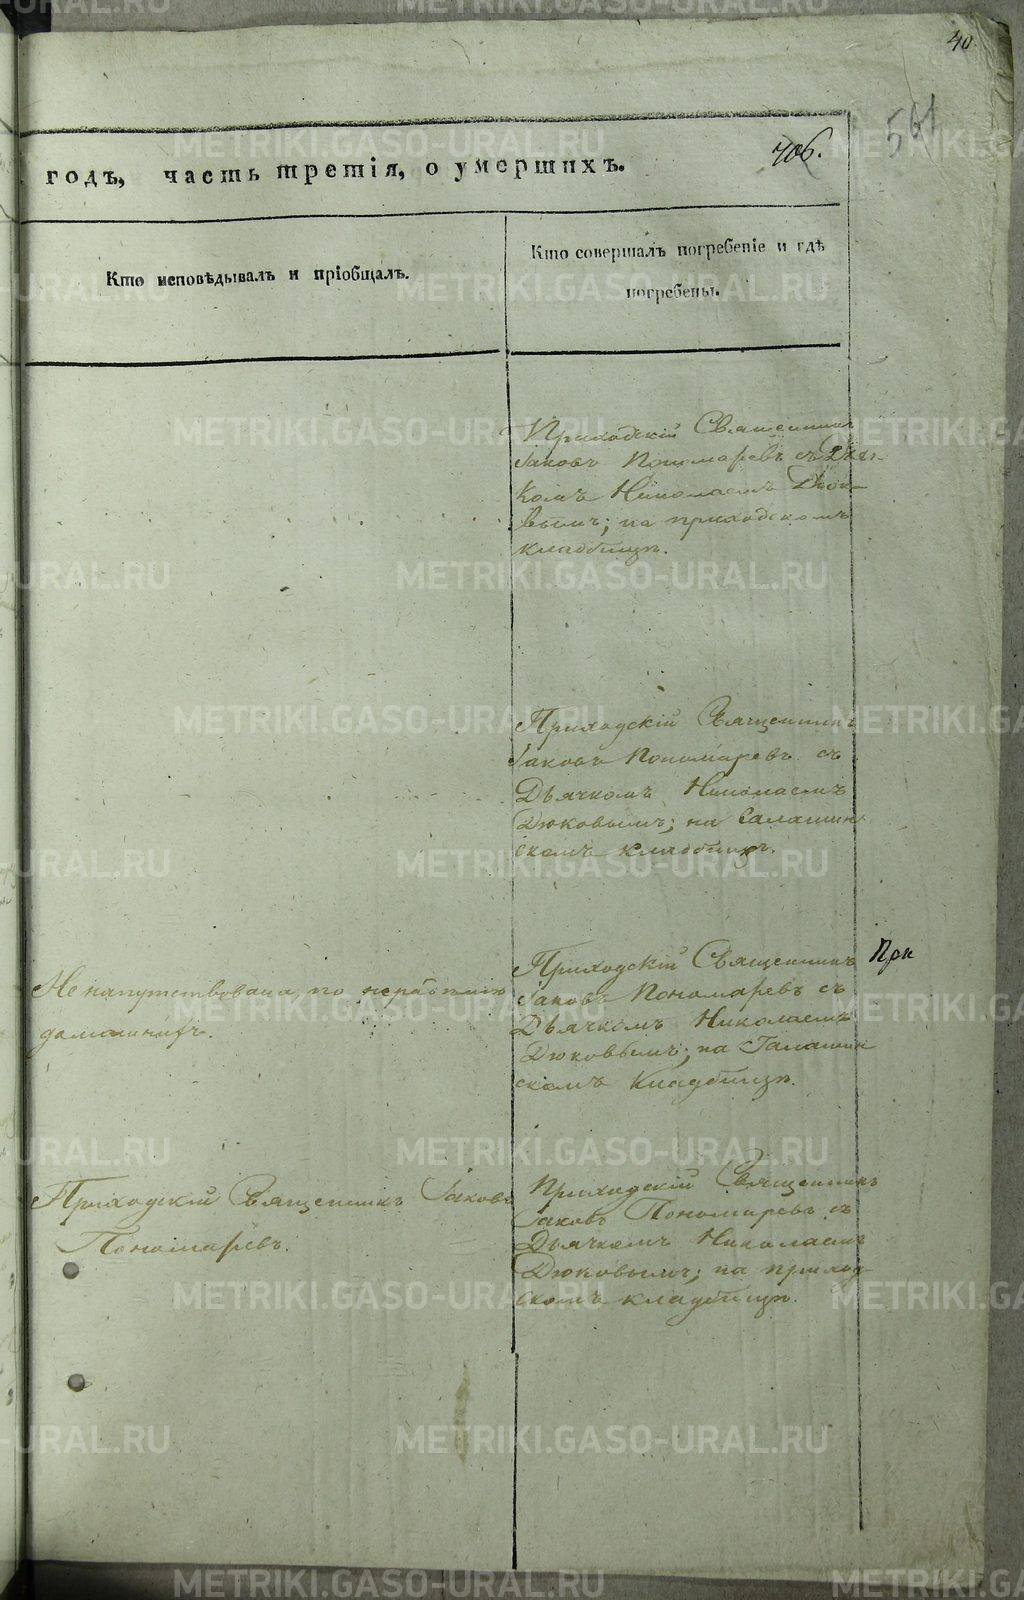 40
561
406.
годъ, часть третія, о умершихъ.
Кто исповѣдывалъ и пріобщалъ.
Кто совершалъ погребеніе и гдѣ
погребены.
Приходскій Священникъ
Іаковъ Пономаревъ съ Дьяч-
комъ Николаемъ Дюко-
вымъ; на приходскомъ
кладбищѣ.
Приходскій Священникъ
Іаковъ Пономаревъ съ
Дьячкомъ Николаемъ
Дюковымъ; на Галашин-
скомъ кладбищѣ.
Не напутствована, по нерадѣнію
домашнихъ.
Приходскій Священникъ
Іаковъ Пономаревъ съ
Дьячкомъ Николаемъ
Дюковымъ; на Галашин
скомъ Кладбищѣ.
При
Приходскій Священникъ Іаковъ
Пономаревъ.
Приходскій Священникъ
Іаковъ Пономаревъ съ
Дьячкомъ Николаемъ
Дюковымъ; на приход-
скомъ кладбищѣ.
METRIKI.GASO-URAL.RU